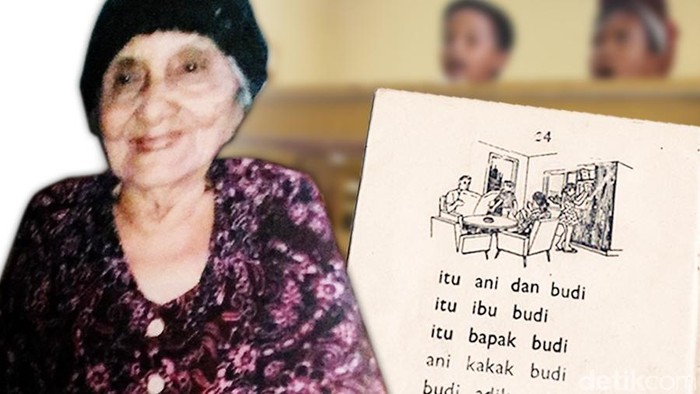 24
itu ani dan budi
itu ibu budi
itu bapak budi
ani kakak budi
budi
detikcom